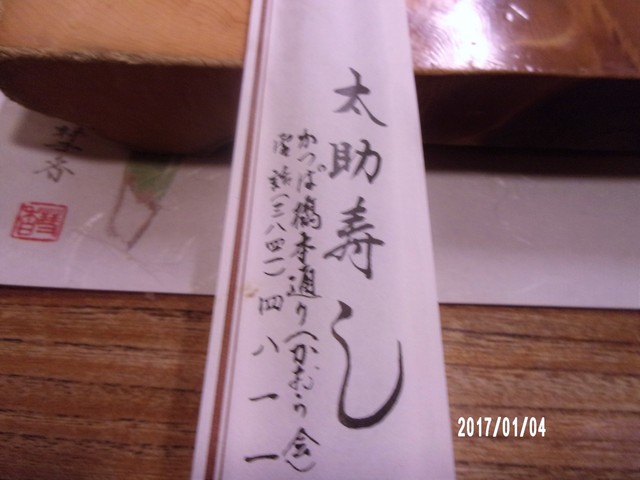 太助寿し
かっぱ橋本通り(かむろ会)
電話(三八四一)四八一一
2017/01/04